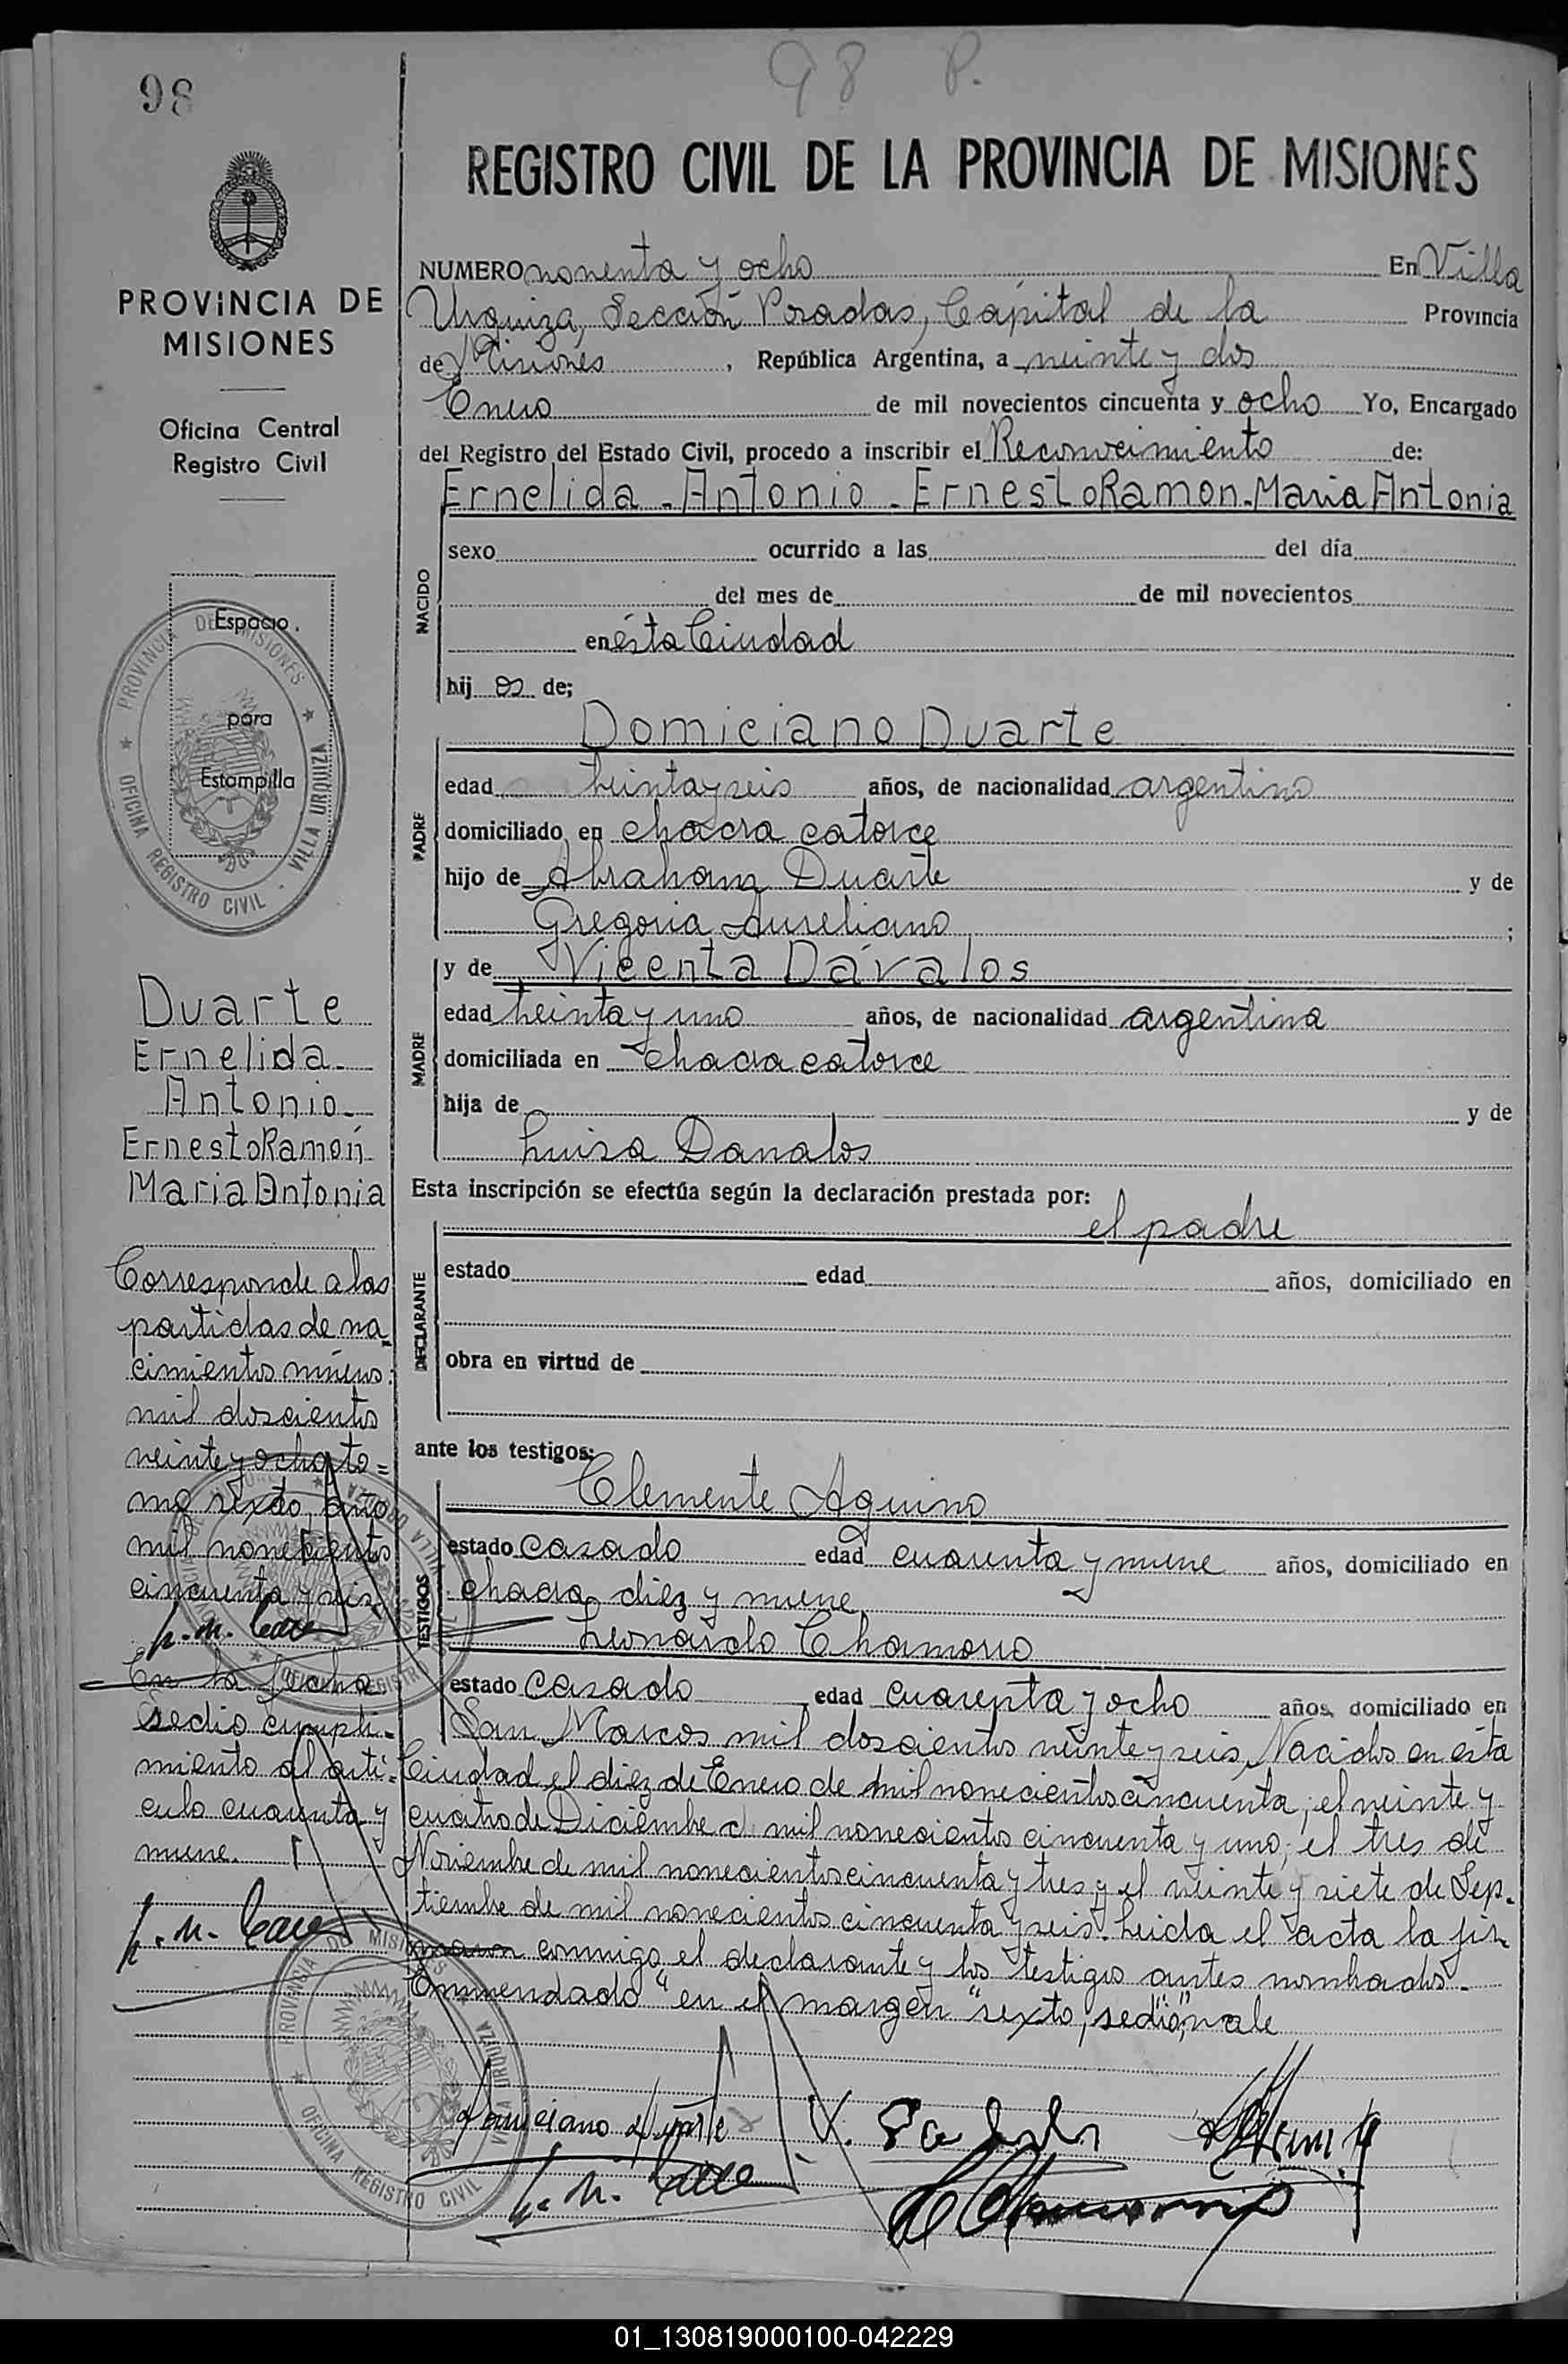 98
98 P.
REGISTRO CIVIL DE LA PROVINCIA DE MISIONES
PROVINCIA DE
MISIONES
Oficina Central
Registro Civil
Espacio
para
Estampilla
PROVINCIA DE MISIONES
OFICINA REGISTRO CIVIL - VILLA URQUIZA
NUMERO nonenta y ocho En Villa
Urquiza, Sección Posadas, Cápital de la Provincia
de Misiones, República Argentina, a veinte y dos
Enero de mil novecientos cincuenta y ocho Yo, Encargado
del Registro del Estado Civil, procedo a inscribir el Reconocimiento de:
Ernelida - Antonio - Ernesto Ramon - Maria Antonia
NACIDO
sexo ocurrido a las del día
del mes de de mil novecientos
en ésta Ciudad
hij os de;
Domiciano Duarte
PADRE
edad treinta y seis años, de nacionalidad argentino
domiciliado en chacra catorce
hijo de Abraham Duarte y de
Gregoria Aureliano ;
y de Vicenta Dávalos
MADRE
edad treinta y uno años, de nacionalidad argentina
domiciliada en chacra catorce
hija de y de
Luisa Davalos
Esta inscripción se efectúa según la declaración prestada por:
el padre
DECLARANTE
estado edad años, domiciliado en
obra en virtud de
ante los testigos:
Clemente Aquino
TESTIGOS
estado casado edad cuarenta y nueve años, domiciliado en
chacra diez y nueve
Leonardo Chamorro
estado casado edad cuarenta y ocho años, domiciliado en
San Marcos mil doscientos veinte y seis, Nacidos en ésta
Ciudad el diez de Enero de mil novecientos cincuenta; el veinte y
cuatro de Diciembre d mil novecientos cincuenta y uno; el tres de
Noviembre de mil novecientos cincuenta y tres y el veinte y siete de Sep-
tiembre de mil novecientos cincuenta y seis. Leida el acta la fir-
maron conmigo el declarante y los testigos antes nombrados.
Enmendado "en el margen "sexto, sedió", vale
Domiciano Duarte
Duarte
Ernelida -
Antonio -
Ernesto Ramón -
Maria Antonia
Corresponde a las
partidas de na-
cimientos número:
mil doscientos
veinte y ocho to=
mo sexto, año
mil novecientos
cincuenta y seis.
En la fecha
sedió cumpli-
miento al arti-
culo cuarenta y
nueve.
PROVINCIA DE MISIONES
OFICINA REGISTRO CIVIL
VILLA URQUIZA
01_130819000100-042229